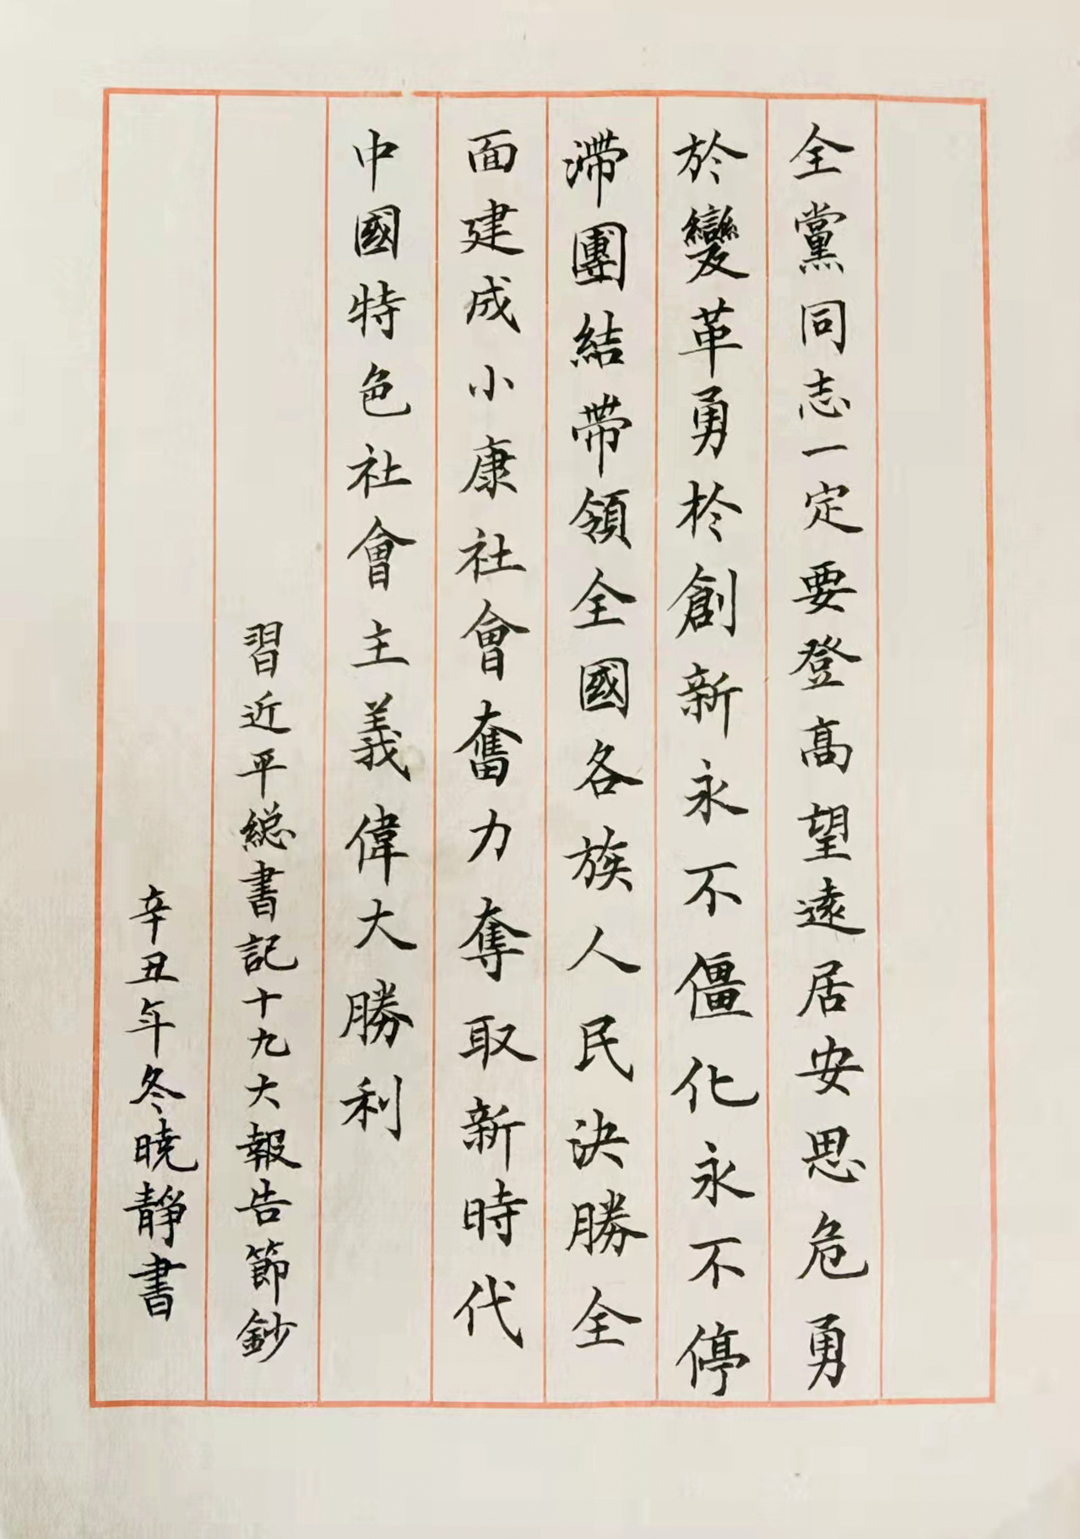 全黨同志一定要登高望遠居安思危勇
於變革勇於創新永不僵化永不停
滯團結帶領全國各族人民決勝全
面建成小康社會奮力奪取新時代
中國特色社會主義偉大勝利
習近平総書記十九大報告節鈔
辛丑年冬曉靜書